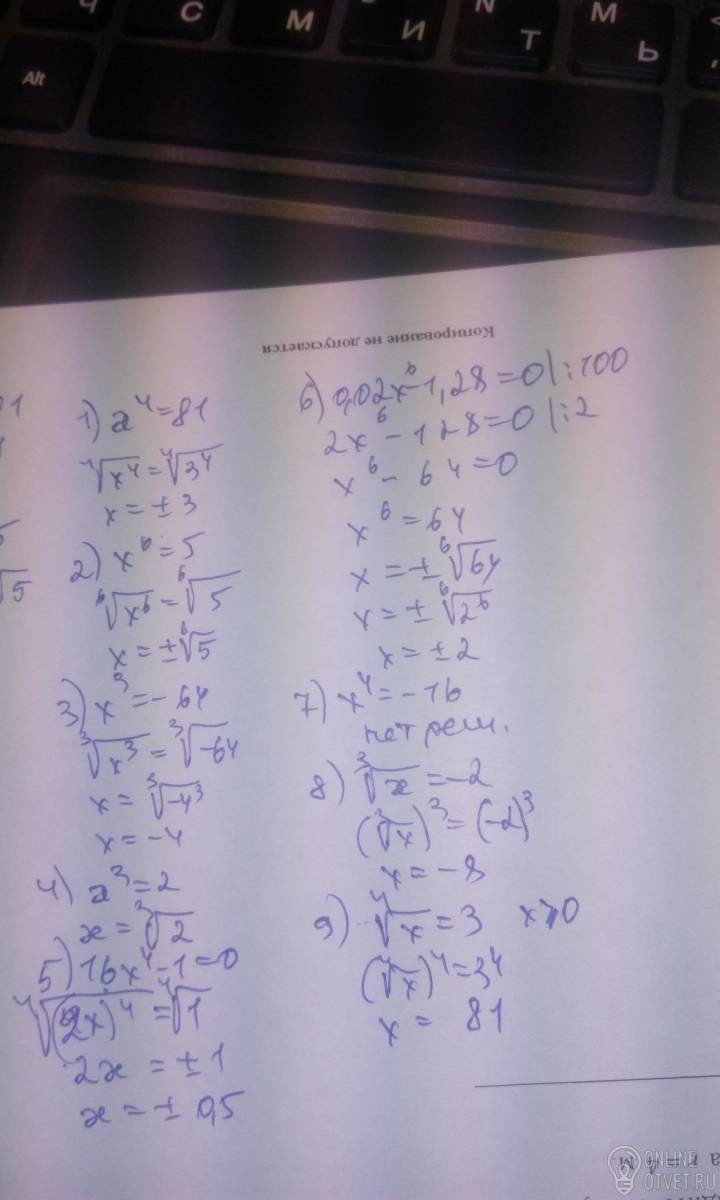 Ч С М И Т Ь
Alt
Копирование не допускается
1) x⁴=81
⁴√x⁴=⁴√3⁴
x=±3
2) x⁶=5
⁶√x⁶=⁶√5
x=±⁶√5
3) x³=-64
³√x³=³√-64
x=³√-4³
x=-4
4) x³=2
x=³√2
5) 16x⁴-1=0
⁴√(2x)⁴=⁴√1
2x=±1
x=±0,5
6) 0,02x⁶-1,28=0|:100
2x⁶-128=0|:2
x⁶-64=0
x⁶=64
x=±⁶√64
x=±⁶√2⁶
x=±2
7) x⁴=-16
нет реш.
8) ³√x=-2
(³√x)³=(-2)³
x=-8
9) ⁴√x=3 x≥0
(⁴√x)⁴=3⁴
x= 81
√5
ONLINE
OTVET.RU